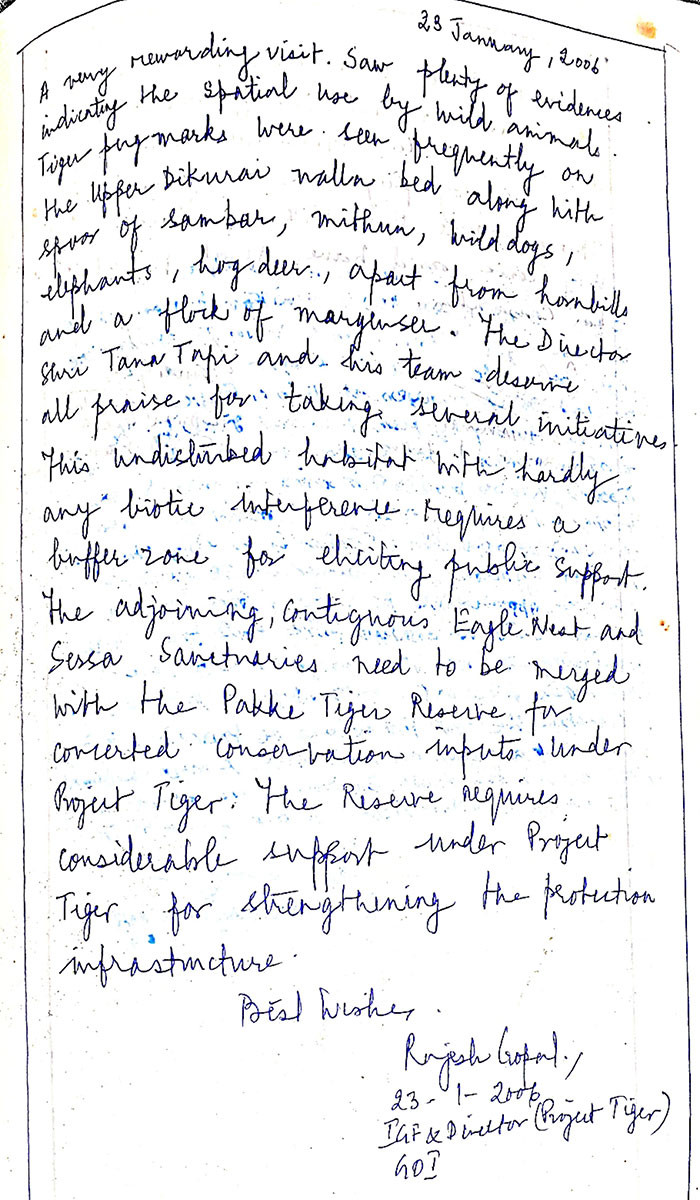 23 January, 2006
A very rewarding visit. Saw plenty of evidences
indicating the spatial use by wild animals.
Tiger pugmarks were seen frequently on
the Upper Dikurai nalla bed along with
spoor of sambar, mithun, wild dogs,
elephants, hog deer, apart from hornbills
and a flock of marganser. The Director
Shri Tana Tapi and his team deserve
all praise for taking several initiatives.
This undisturbed habitat with hardly
any biotic interference requires a
buffer zone for eliciting public support.
The adjoining, contiguous Eagle Nest and
Sessa Sanctuaries need to be merged
with the Pakke Tiger Reserve for
concerted conservation inputs under
Project Tiger. The Reserve requires
considerable support under Project
Tiger for strengthening the protection
infrastructure.
Best Wishes,
Rajesh Gopal,
23-1-2006
IGF & Director (Project Tiger)
GOI